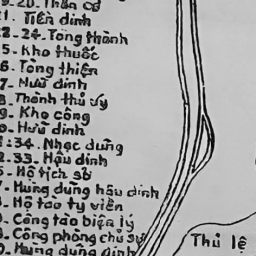 9-20-Thần cơ
1. Tiền dinh
2-24-Tòng thành
5-Kho thuốc
6-Tòng thiện
7-Hữu dinh
8-Thành thủ úy
9-Kho công
0-Hữu dinh
1:34. Nhạc dũng
2.33-Hậu dinh
5-Hộ tịch sở
7-Hùng dũng hậu dinh
8-Hộ tào ty viên
9-Công tào biện lý
9-Công phòng chủ sự
0-Hùng dũng dinh
Thủ lệ